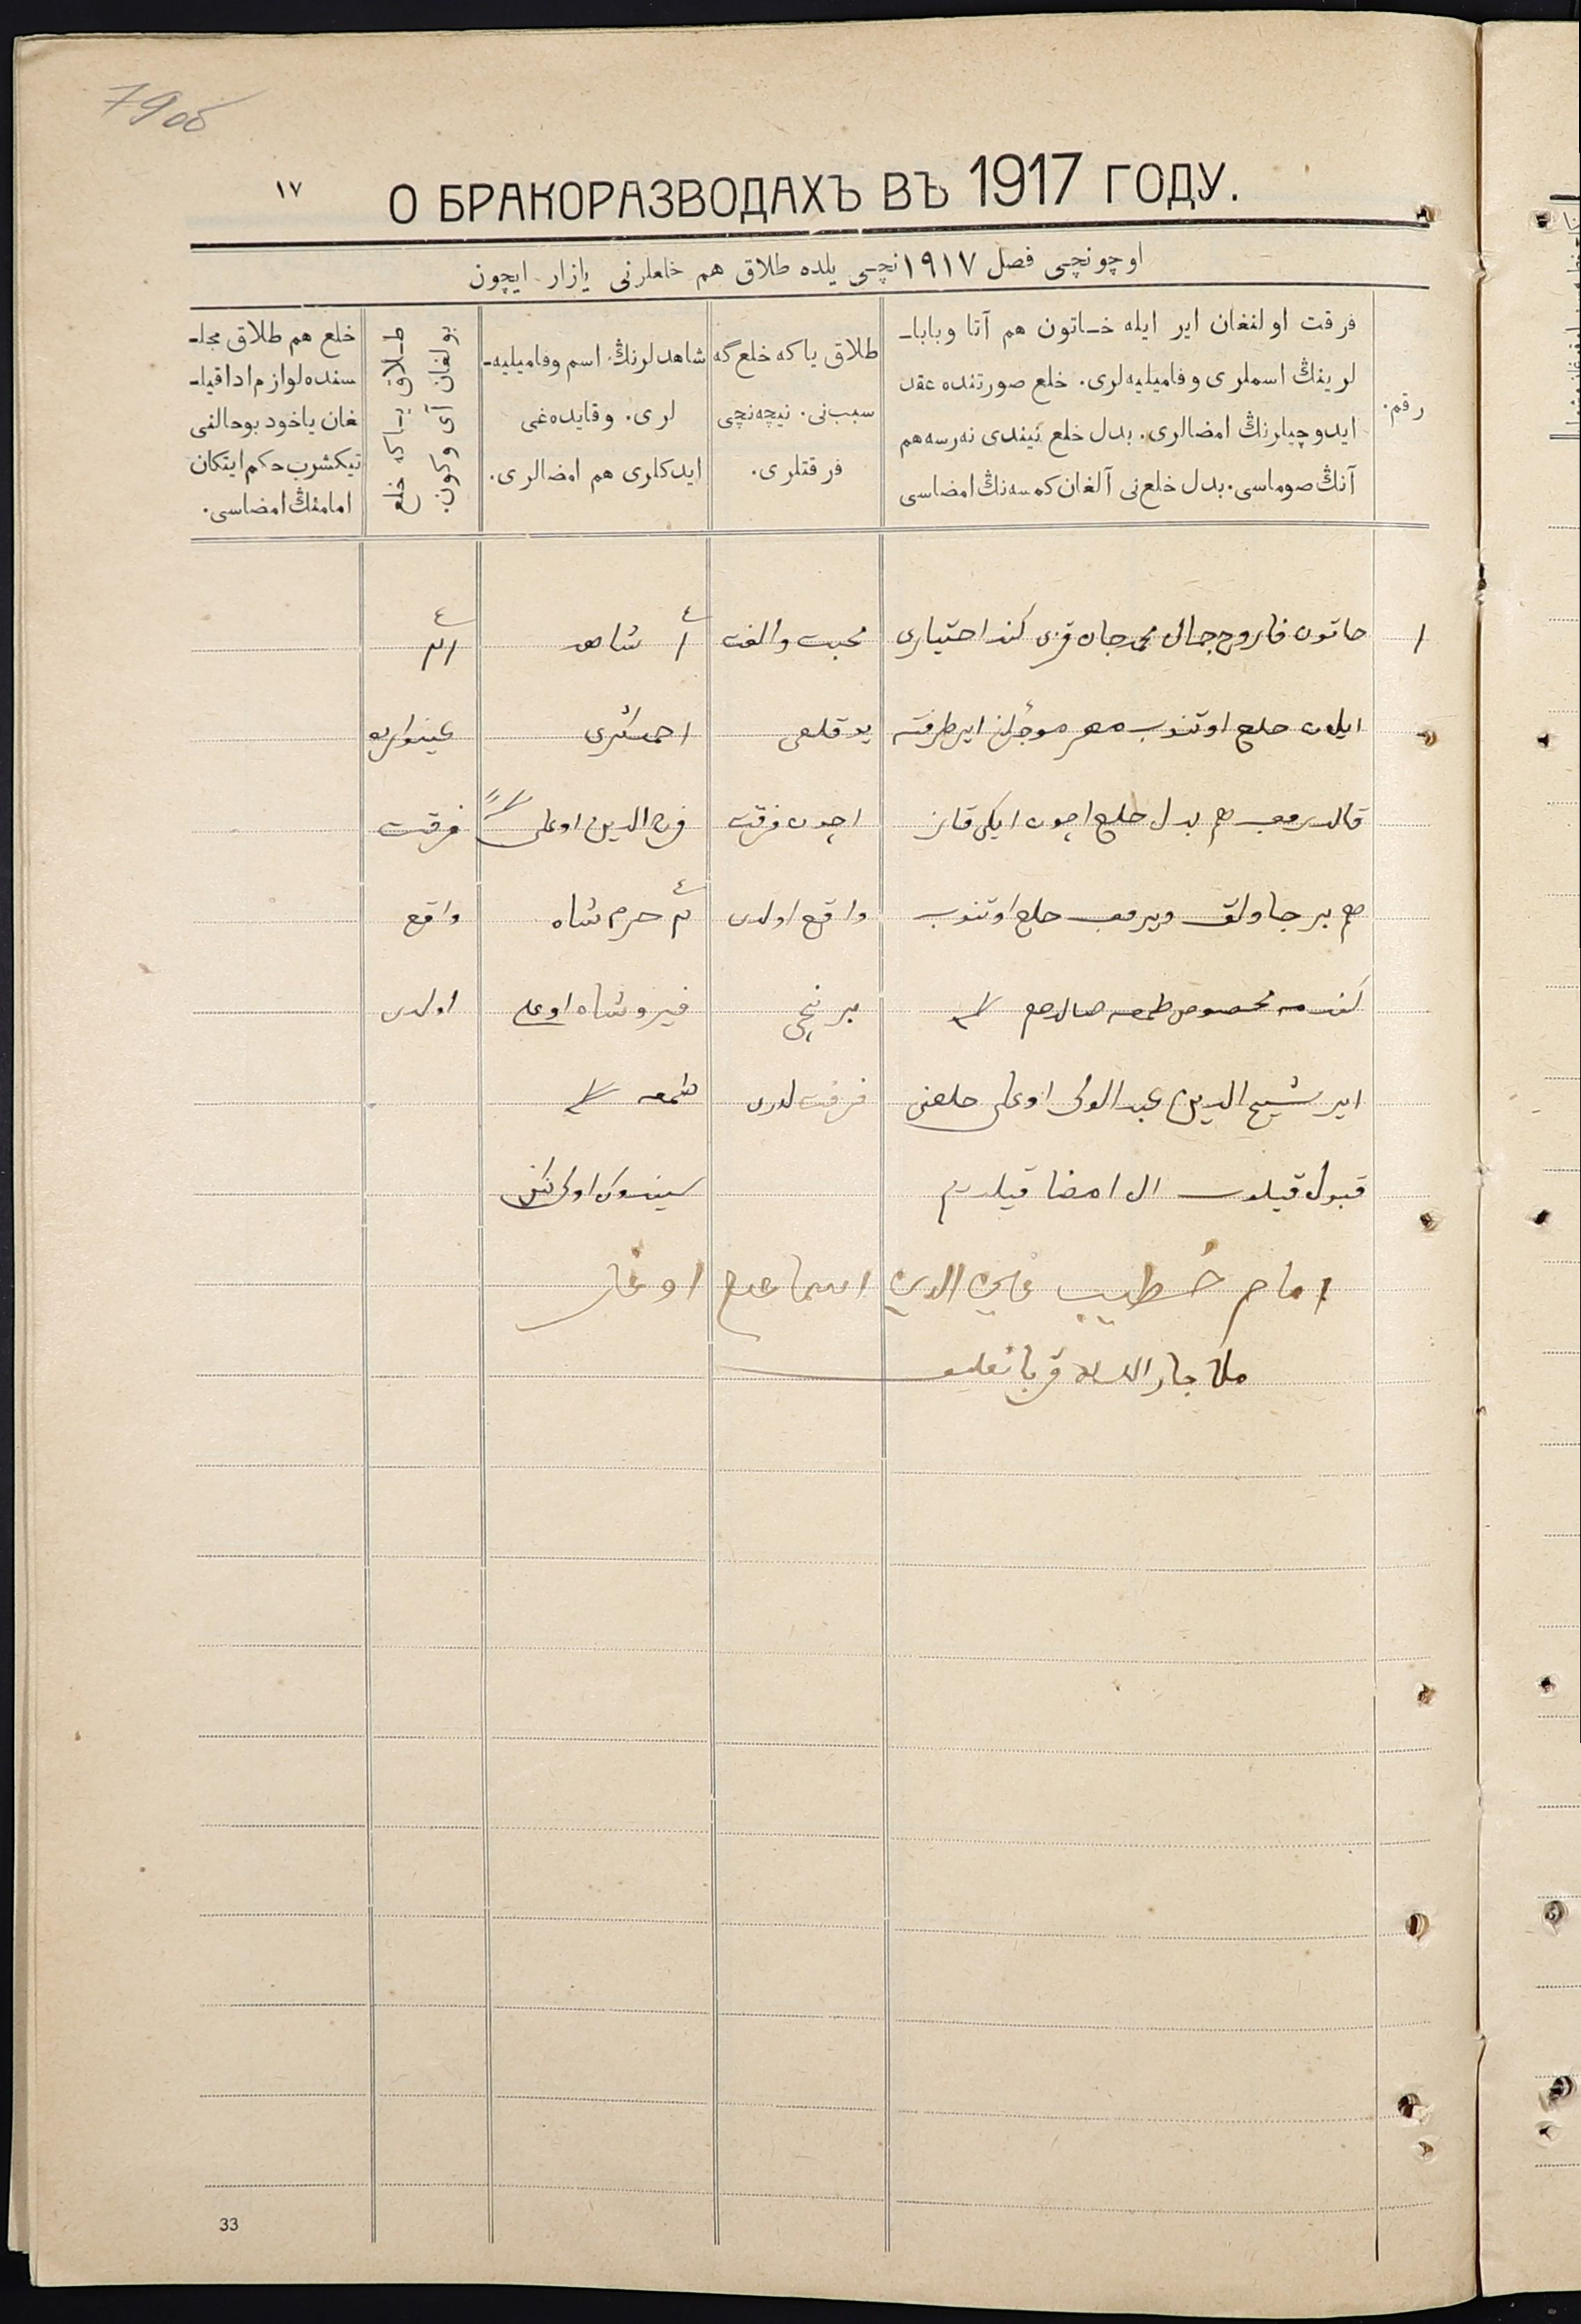 79 об
١٧
О БРАКОРАЗВОДАХЪ ВЪ 1917 ГОДУ.
اوچونچی فصل ١٩١٧نچی یلده طلاق هم خلعلرنی یازار ایچون
رقم.
فرقت اولنغان ایر ایله خاتون هم آتا وبابا-
لرینڭ اسملری وفامیلیه‌لری. خلع صورتنده عقد
ایدوچیلرنڭ امضالری. بدل خلع نیندی نەرسه هم
آنڭ صوماسی. بدل خلع‌نی آلغان کمسه‌نڭ امضاسی
طلاق یا که خلع گه
سبب‌نی. نیچه‌نچی
فرقتلری.
شاهدلرنڭ اسم وفامیلیه-
لری. وقایده‌غی
ایدکلری هم امضالری.
طلاق یا که خلع
بولغان آی وکون.
خلع هم طلاق مجلـ
سنده لوازم ادا قیلـ
غان یاخود بوحالنی
تیکشرب حکم ایتکان
امامنڭ امضاسی.
١
خاتون جمال محمدجان قزی کند اختیاری
ایلان خلع اوتنوب مهر ایر طرفنه
هم بدل خلع اچون ایکی قاز
هم بر ویروب خلع اوتنوب
مخصوص طمغه
ایر شیخ الدین عبد الولی اوغلی خلعنی
قبول قیلوب ال امضا قیلدیم
محبت والفت
یوقلغی
اچون فرقت
واقع اولدی
برنچی
فرقتلری
١ شاهد
احمد
الدین اوغلی
٢ حرم شاه
فیروشاه اوغلی
طمغه
غینوارده
فرقت
واقع
اولدی
امام خطیب الدین اسماعیل اوغلی
ملا جار الله قربانعلیف
33